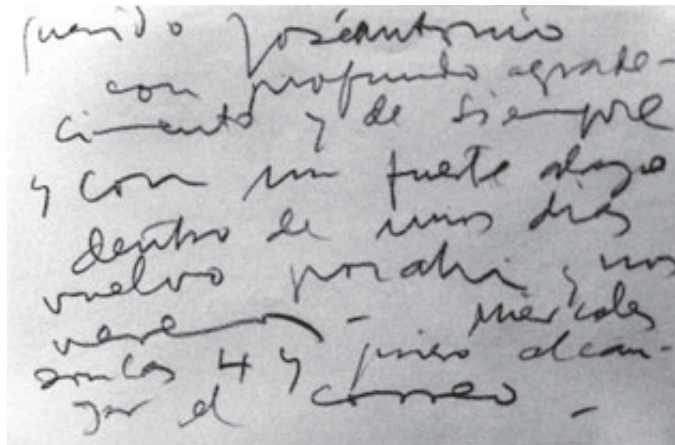 querido Joséantonio
con profundo agrade-
cimiento y de siempre
y con un fuerte abrazo
dentro de unos dias
vuelvo por ahi y nos
veremos - miércoles
son las 4 y quiero alcan-
zar el correo -